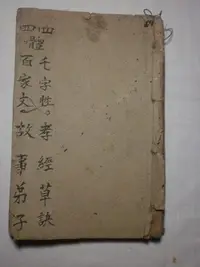 四體千字姓。孝經草訣
四體百家文。故事弟子